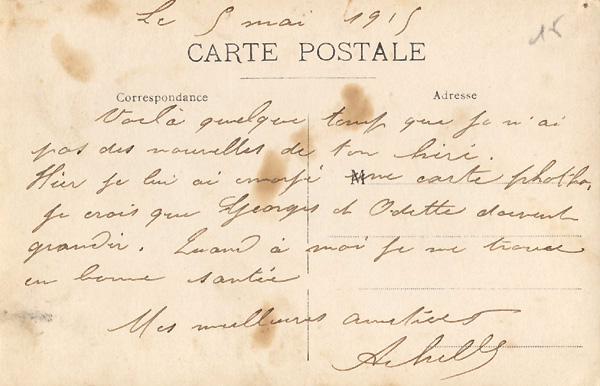 Le 5 mai 1915
15
CARTE POSTALE
Correspondance
Adresse
Voilà quelque temp que je n'ai
pas des nouvelles de ton
Hier je lui ai une carte photho,
je crois que Georges et Odette doivent
grandir. Quand à moi je me trouve
en bonne santée
Mes meilleures amitiées
Achille